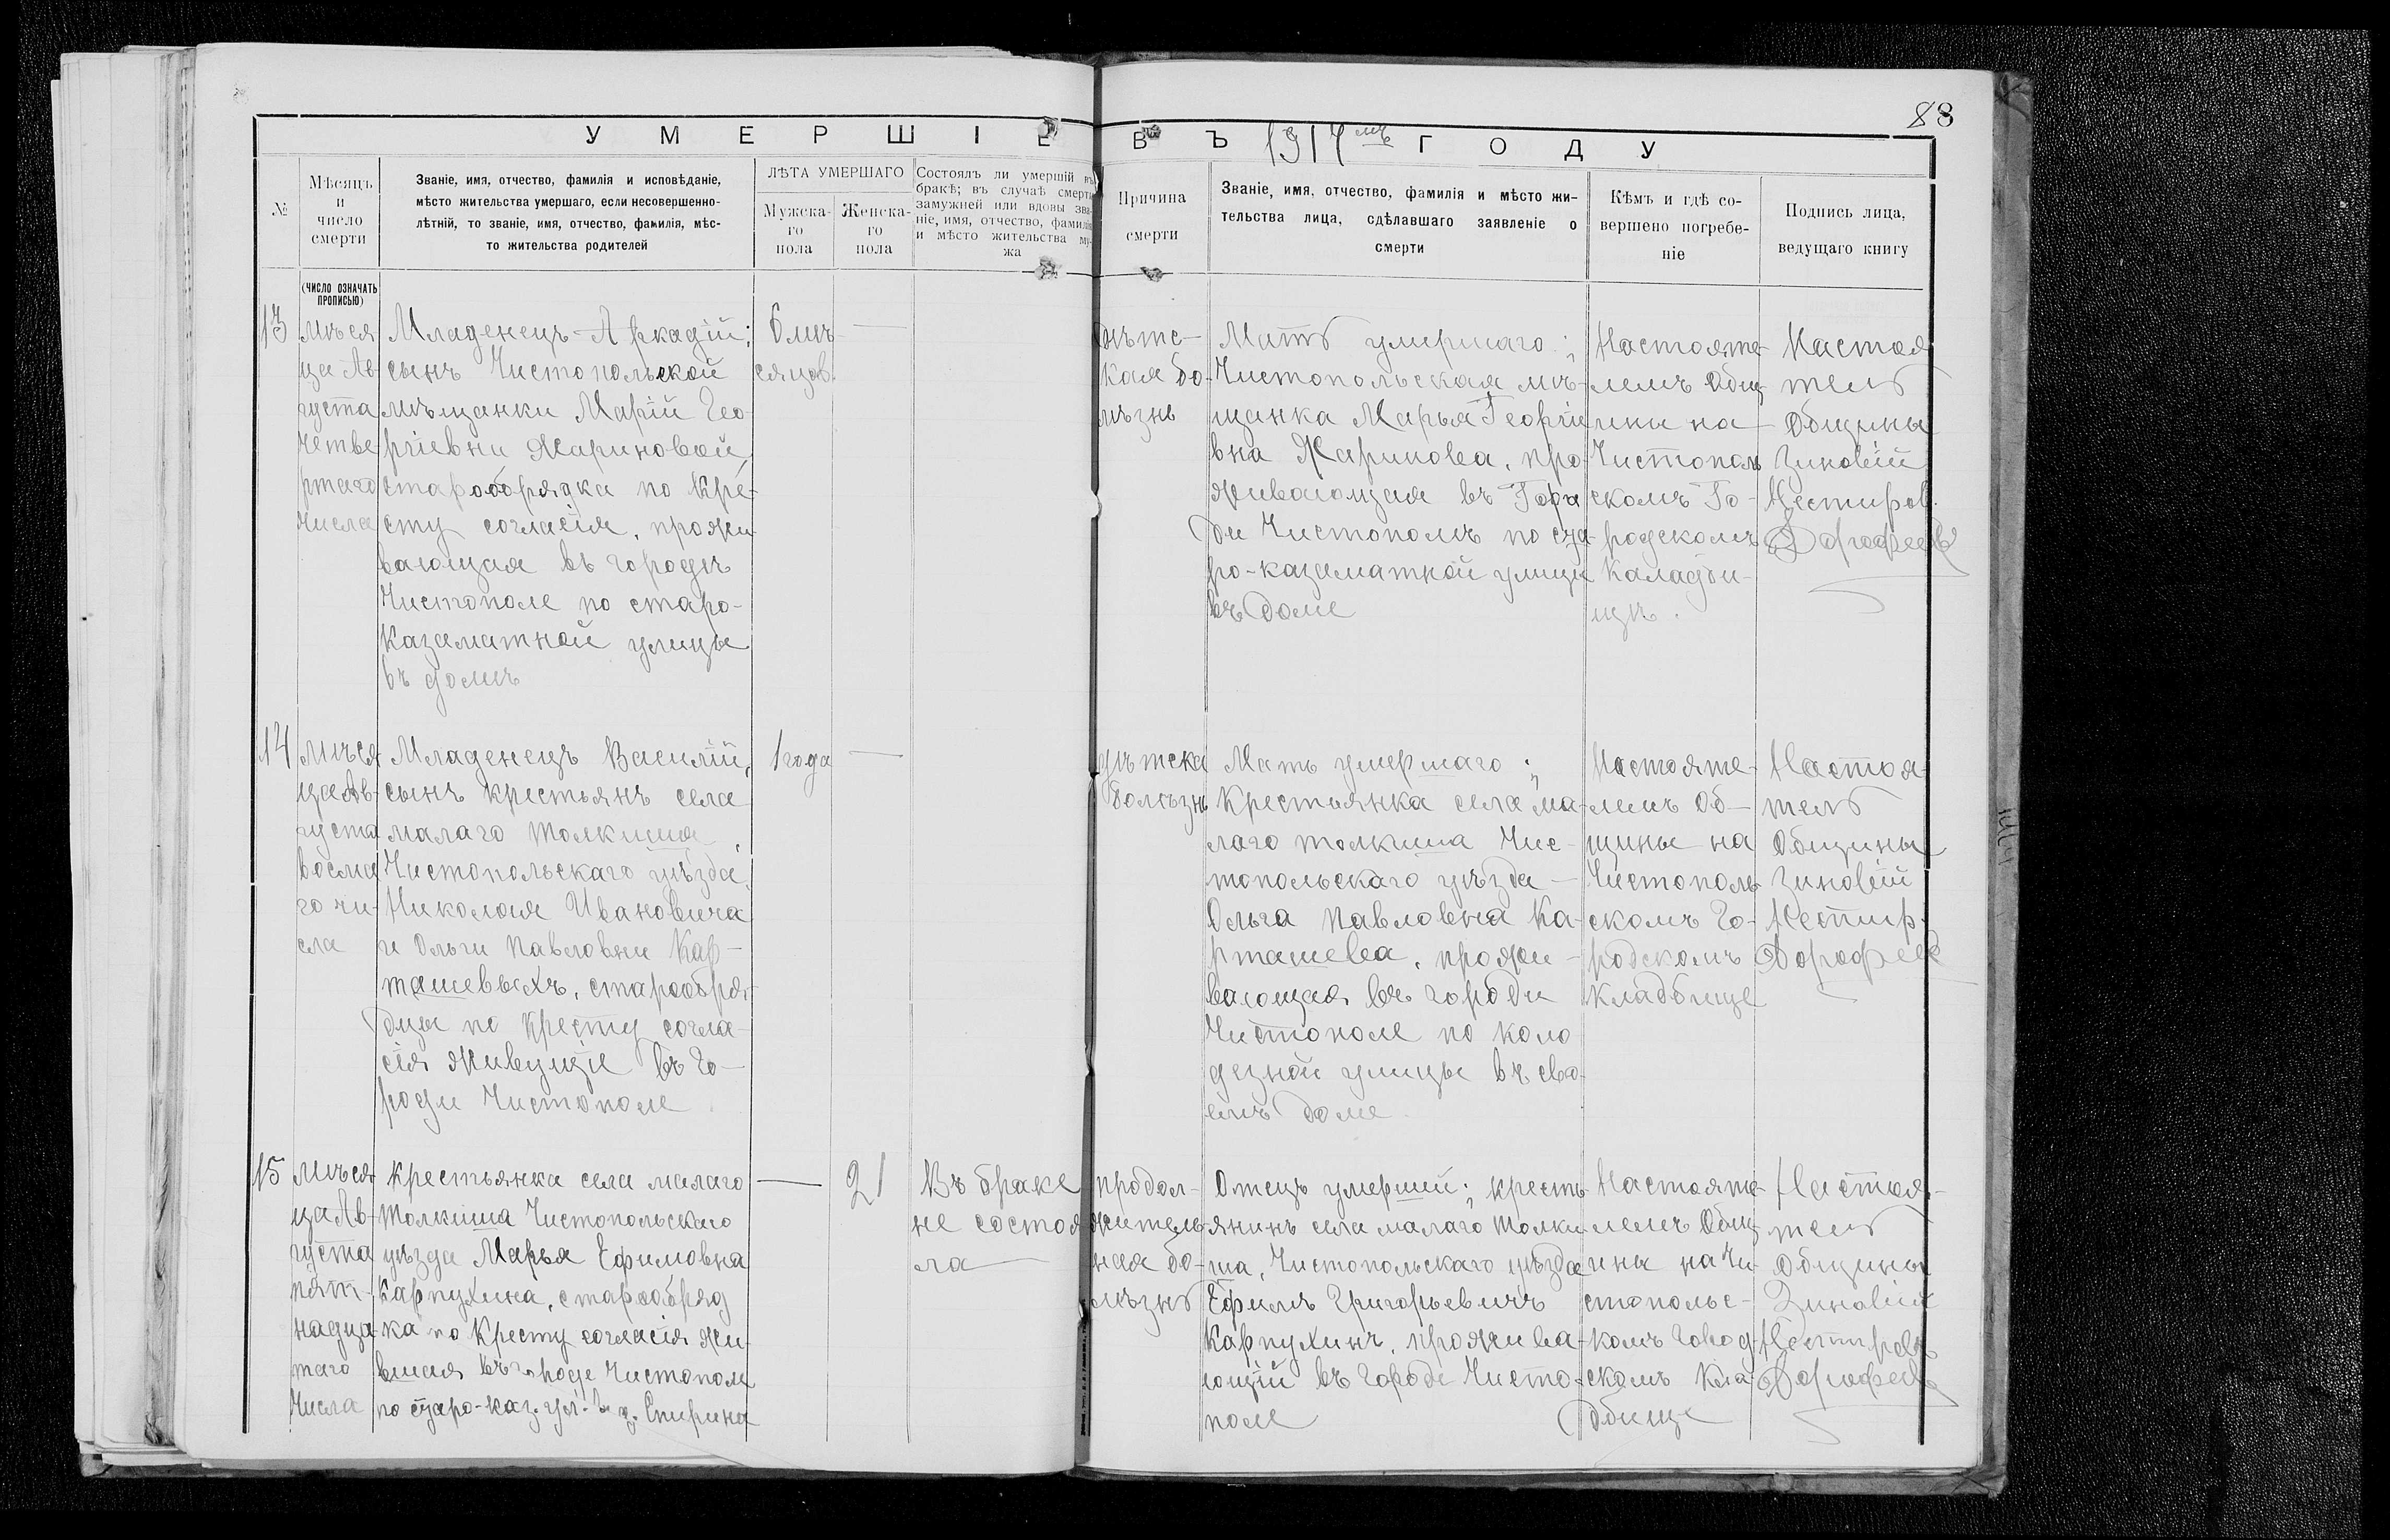 88
УМЕРШІЕ ВЪ 1917мъ ГОДУ
№
Мѣсяцъ
и
число
смерти
Званіе, имя, отчество, фамилія и исповѣданіе,
мѣсто жительства умершаго, если несовершенно-
лѣтній, то званіе, имя, отчество, фамилія, мѣс-
то жительства родителей
ЛѢТА УМЕРШАГО
Мужска-
го
пола
Женска-
го
пола
Состоялъ ли умершій въ
бракѣ; въ случаѣ смерти
замужней или вдовы зва-
ніе, имя, отчество, фамилія
и мѣсто жительства му-
жа
Причина
смерти
Званіе, имя, отчество, фамилія и мѣсто жи-
тельства лица, сдѣлавшаго заявленіе о
смерти
Кѣмъ и гдѣ со-
вершено погребе-
ніе
Подпись лица,
ведущаго книгу
(ЧИСЛО ОЗНАЧАТЬ
ПРОПИСЬЮ)
13
мѣся
ца Ав-
густа
четве
ртаго
числа
Младенецъ Аркадій;
сынъ Чистопольской
мѣщанки Марій Гео-
ргіевни Жариновой,
старообрядка по Кре-
сту согласія, прожи-
вающая въ городѣ
Чистополе по старо-
Казаматной улицы
въ домѣ
6 мѣ-
сяцов.
дѣтс-
кая бо-
лѣзнь
Мать умершаго;
Чистопольская мѣ-
щанка Марья Георгіе
вна Жаринова, про-
живающая въ Горо
ди Чистополѣ по ста-
ро-казаматной улицы
въ доме
Настояте-
лемъ Общ
ины на
Чистополь
скомъ Го-
родскомъ
Каладби-
щѣ.
Настоя
тель
Общины
Зиновій
Нестиров.
Дорофеевъ
14
мѣся
ца Ав-
густа
восма
го чи-
сла
Младенецъ Василій,
сынъ крестьянъ села
малаго Толкиша,
Чистопольскаго уѣзда,
Николая Ивановича
и Ольги Павловни Кар-
ташевыхъ, старообря-
дцы по Кресту согла-
сія живущіе въ го-
роди Чистополе
1 года
дѣтска
болѣзнь
Мать умершаго;
Крестьянка села ма-
лаго толкиша Чис-
топольскаго уѣзда
Ольга Павловна Ка-
рташева, прожи-
вающая въ городи
Чистополе по коло
дезной улицы въ сво-
емъ доме
Настояте-
лемъ Об-
щины на
Чистополь
скомъ Го-
родскомъ
Кладбище
Настоя-
тель
Общины
Зиновій
Нестир.
Дорофеев
15
мѣся
ца Ав-
густа
пят-
надца
таго
числа
Крестьянка села малаго
Толкиша Чистопольскаго
уѣзда Марья Ефимовна
Карпухина, старообряд
ка по Кресту согласія жи-
вшая въ городе Чистополе
по старо-каз. ул. в д. Спирина
21
Въ браке
не состоя
ла
продол-
житель-
ная бо-
лѣзнь
Отецъ умершй; кресть-
янинъ села малаго Толки-
ша, Чистопольскаго уѣзда
Ефимъ Григорьевичъ
Карпухинъ, прожива-
ющій въ Городе Чисто-
поле
Настояте-
лемъ Общ-
ины на Чи-
стопольс-
комъ город-
скомъ Кла-
дбище
Настоя-
тель
Общины
Зиновій
Нестировъ
Дорофеевъ